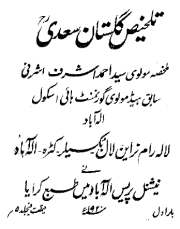 تلخیص گلستان سعدی رح
ملخصہ مولوی سید احمد اشرف اشرفی
سابق ہیڈ مولوی گورنمنٹ ہائی اسکول
الہ آباد
لالہ رام نراین لال بکسیلر - کٹرہ - الہ آباد
نے
نیشنل پریس الہ آباد میں طبع کرایا
بار اول